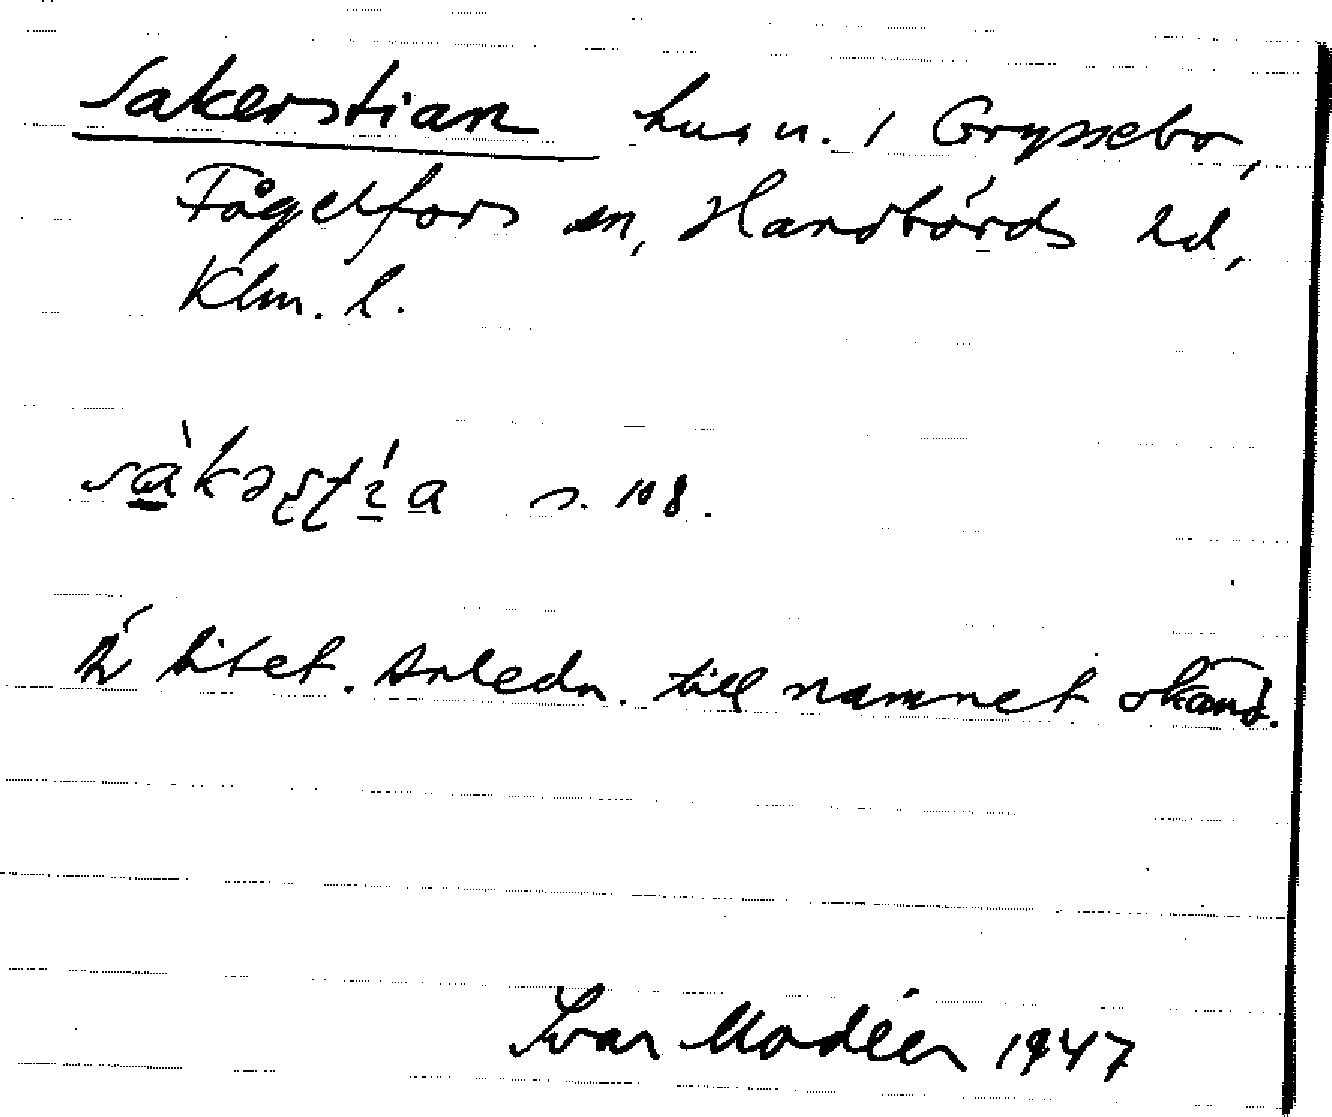 Sakerstian hus n. i Gryssebo,
Fågelfors sn, Handbörds hd,
Klm. l.
s. 108.
Är litet. Anledn. till namnet okänd.
Ivar Modéer 1947